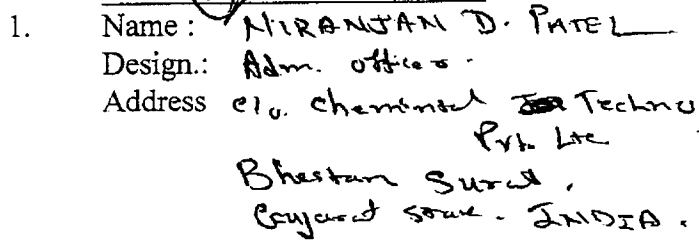 1. Name : NIRANJAN D. PATEL
Design.: Adm. officer.
Address C/o. Chemintel Techno
Pvt. Ltd
Bhestan Surat,
Gujarat State. INDIA.